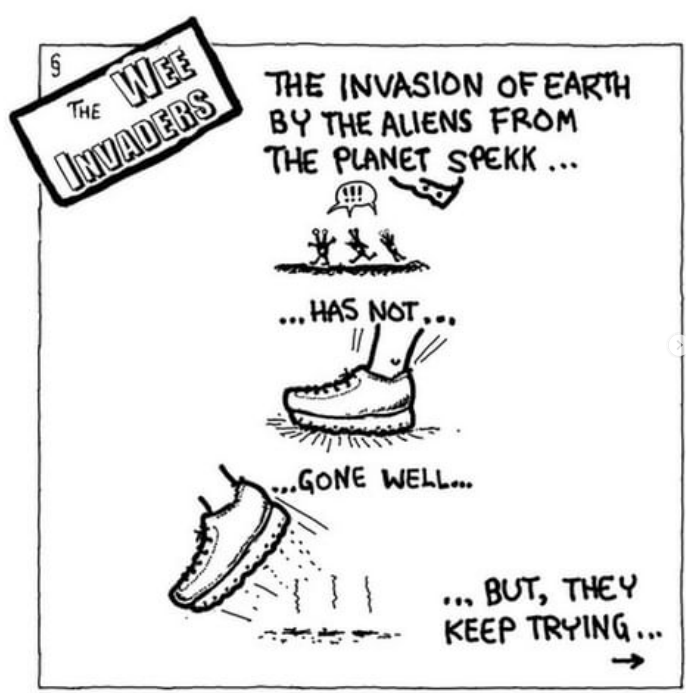 §
THE WEE
INVADERS
THE INVASION OF EARTH
BY THE ALIENS FROM
THE PLANET SPEKK ...
!!!
... HAS NOT ...
...GONE WELL...
... BUT, THEY
KEEP TRYING ...